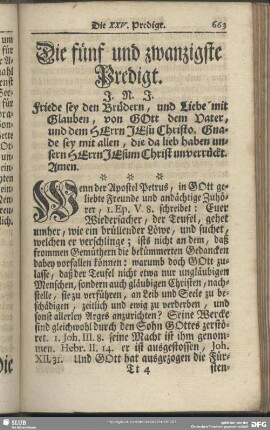 Die XXV. Predigt. 663
Die fünf und zwanzigste
Predigt.
J. N. J.
Friede sey den Brüdern, und Liebe mit
Glauben, von GOtt dem Vater,
und dem HErrn JEsu Christo. Gna-
de sey mit allen, die da lieb haben un-
sern HErrn JEsum Christ unverrückt.
Amen.
* * *
Wenn der Apostel Petrus, in GOtt ge-
liebte Freunde und andächtige Zuhö-
rer, 1. Ep. V. 8. schreibet: Euer
Wiedersacher, der Teufel, gehet
umher, wie ein brüllender Löwe, und suchet,
welchen er verschlinge; ists nicht an dem, daß
frommen Gemüthern die bekümmerten Gedancken
dabey vorfallen können: warum doch GOtt zu-
lasse, daß der Teufel nicht etwa nur ungläubigen
Menschen, sondern auch gläubigen Christen, nach-
stelle, sie zu verführen, an Leib und Seele zu be-
schädigen, zeitlich und ewig zu verderben, und
sonst allerley Arges anzurichten? Seine Wercke
sind gleichwohl durch den Sohn GOttes zerstö-
ret. 1. Joh. III. 8. seine Macht ist ihm genom-
men. Hebr. II. 14. er ist ausgestossen, Joh.
XII. 31. Und GOtt hat ausgezogen die Für-
Tt 4 sten-
SLUB